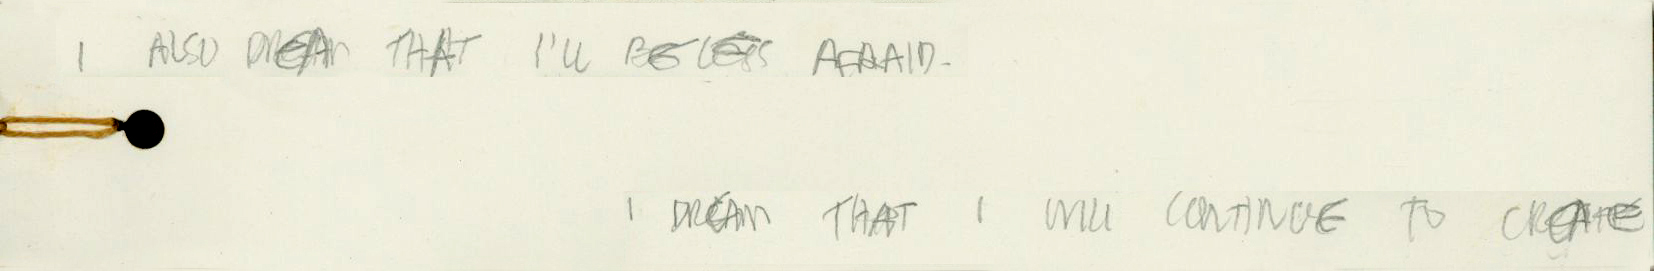 I ALSO DREAM THAT I'LL BE LESS AFRAID.
I DREAM THAT I WILL CONTINUE TO CREATE